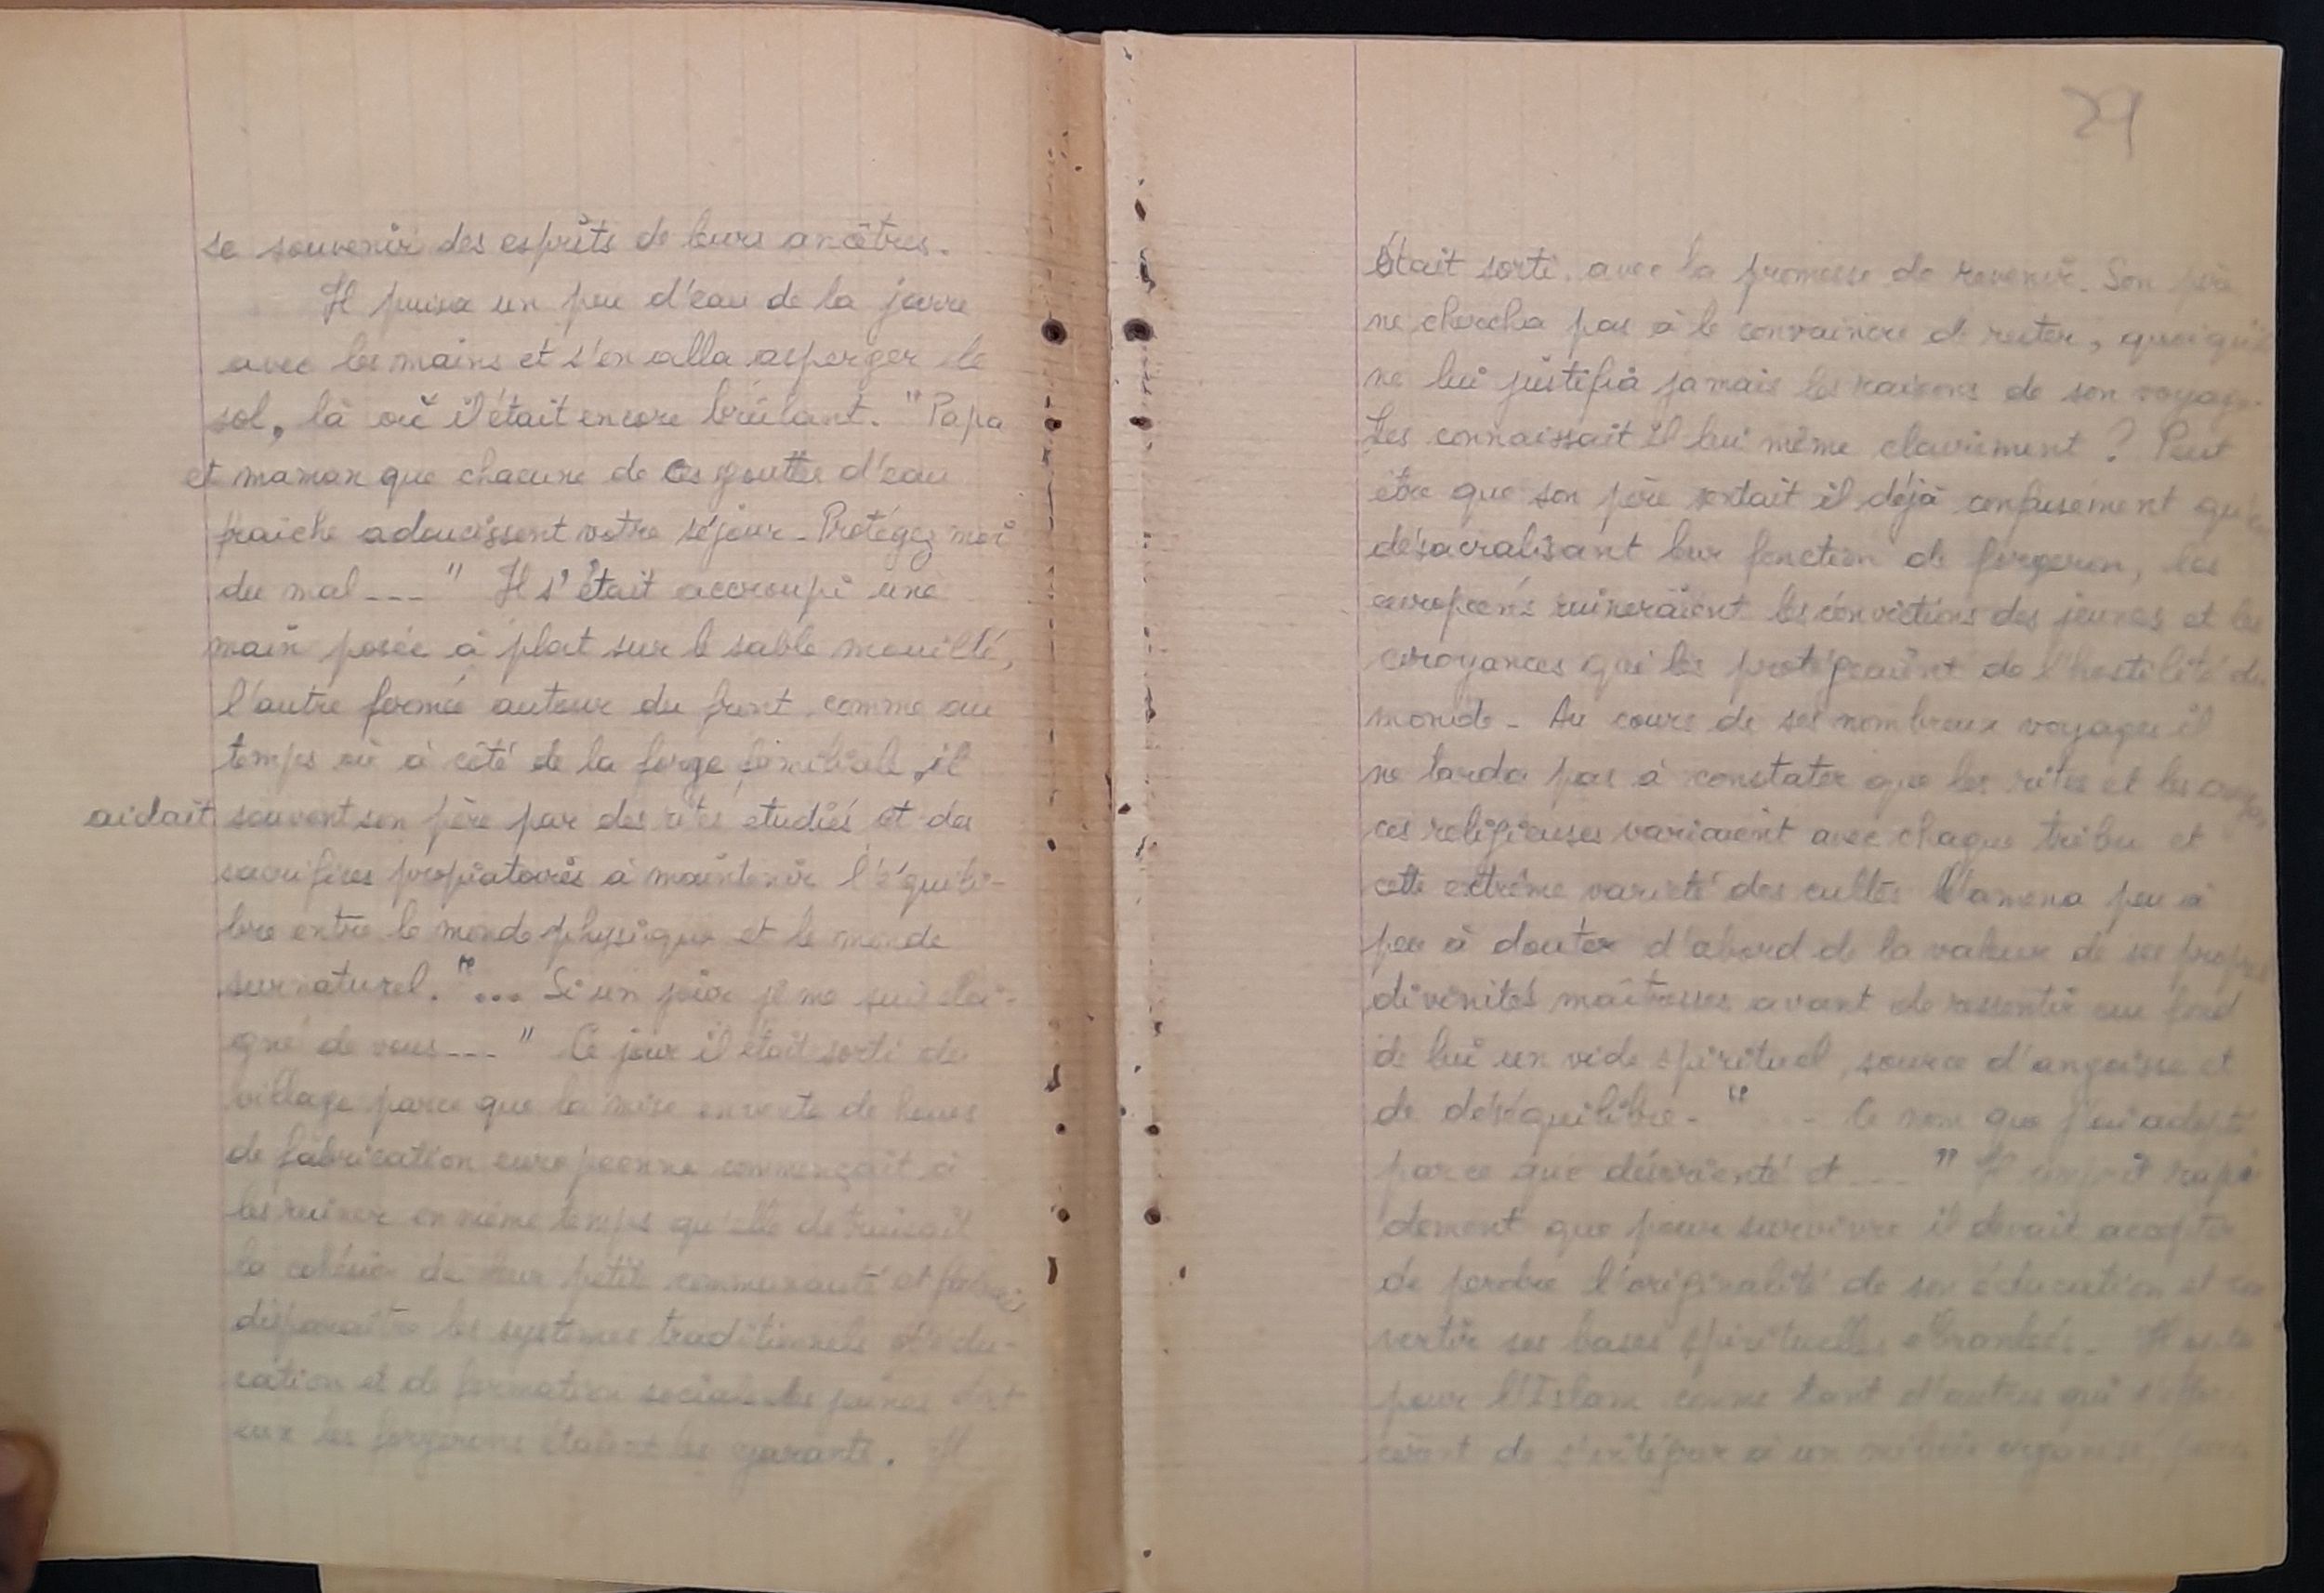 se souvenir des esprits de leurs ancêtres.
Il puisa un peu d'eau de la jarre
avec les mains et s'en alla asperger le
sol, là où il était encore brûlant. "Papa
et maman que chacune de ces gouttes d'eau
fraîche adoucissent votre séjour. Protégez moi
du mal---" Il s'était accroupi une
main posée à plat sur le sable mouillé,
l'autre fermée autour du front, comme au
temps où à côté de la forge familiale, il
aidait souvent son père par des rites étudiés et des
sacrifices propiatoires à maintenir l'équili-
bre entre le monde physique et le monde
surnaturel. "... Si un jour je me suis éloi-
gné de vous---" Ce jour il était sorti du
village parce que la mise en vente de houes
de fabrication européenne commençait à
les ruiner en même temps qu'elle detruisait
la cohésion de leur petite communauté et
disparaître les systèmes traditionnels d'édu-
cation et de formation sociale des jeunes dont
eux les forgerons étaient les garants. Il
29
Était sorti, avec la promesse de revenir. Son père
ne chercha pas à le convaincre de rester, quoiqu'il
ne lui justifia jamais les raisons de son voyage.
Les connaissait il lui même clairement ? Peut
être que son père sentait il déjà confusement qu'en
désacralisant leur fonction de forgeron, les
européens ruineraient les convictions des jeunes et les
croyances qui les protégeaient de l'hostilité du
monde. Au cours de ses nombreux voyages il
ne tarda pas à constater que les rites et les
ces religieuses variaient avec chaque tribu et
cette extrême varieté des cultes l'amena peu à
peu à douter d'abord de la valeur de ses propres
divinités maîtresses avant de ressentir au fond
de lui un vide spirituel, source d'angoisse et
de déséquilibre. " - Ce nom que j'ai adopté
parce que désorienté et ---" Il rapi
dement que pour survivre il devait accepter
de perdre l'originalité de son éducation et
vertir ses bases spirituelles ébranlées. Il
pour l'Islam comme tant d'autres qui
de s'intégrer à un milieu